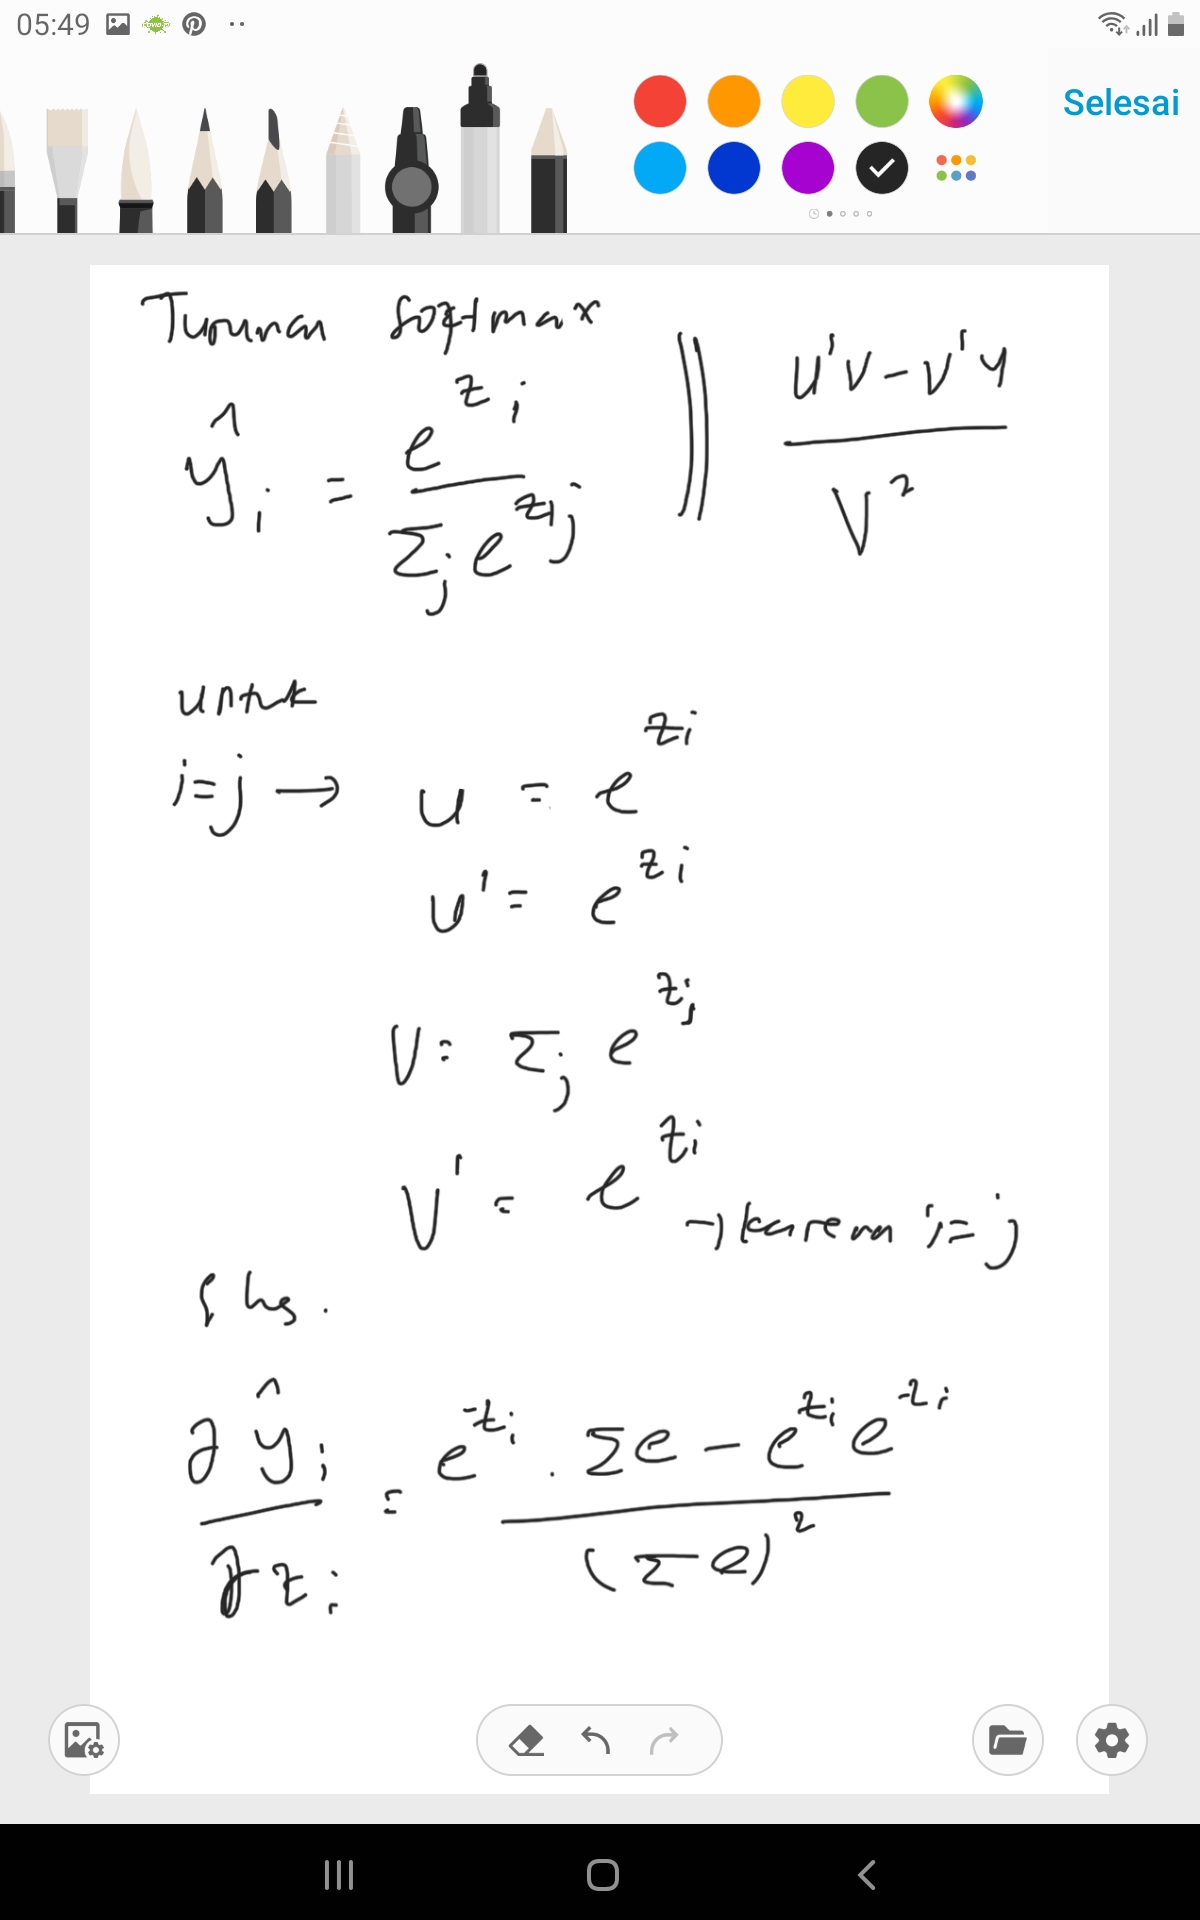 05:49
Selesai
Turunan softmax
ŷ_i = e^{z_i} / Σ_j e^{z_j} || (u'v - v'u) / v²
untuk
i=j → u = e^{z_i}
u' = e^{z_i}
V = Σ_j e^{z_j}
V' = e^{z_i} → karena i=j
∂ŷ_i / ∂z_i = (e^{z_i} . Σe - e^{z_i} e^{z_i}) / (Σe)²